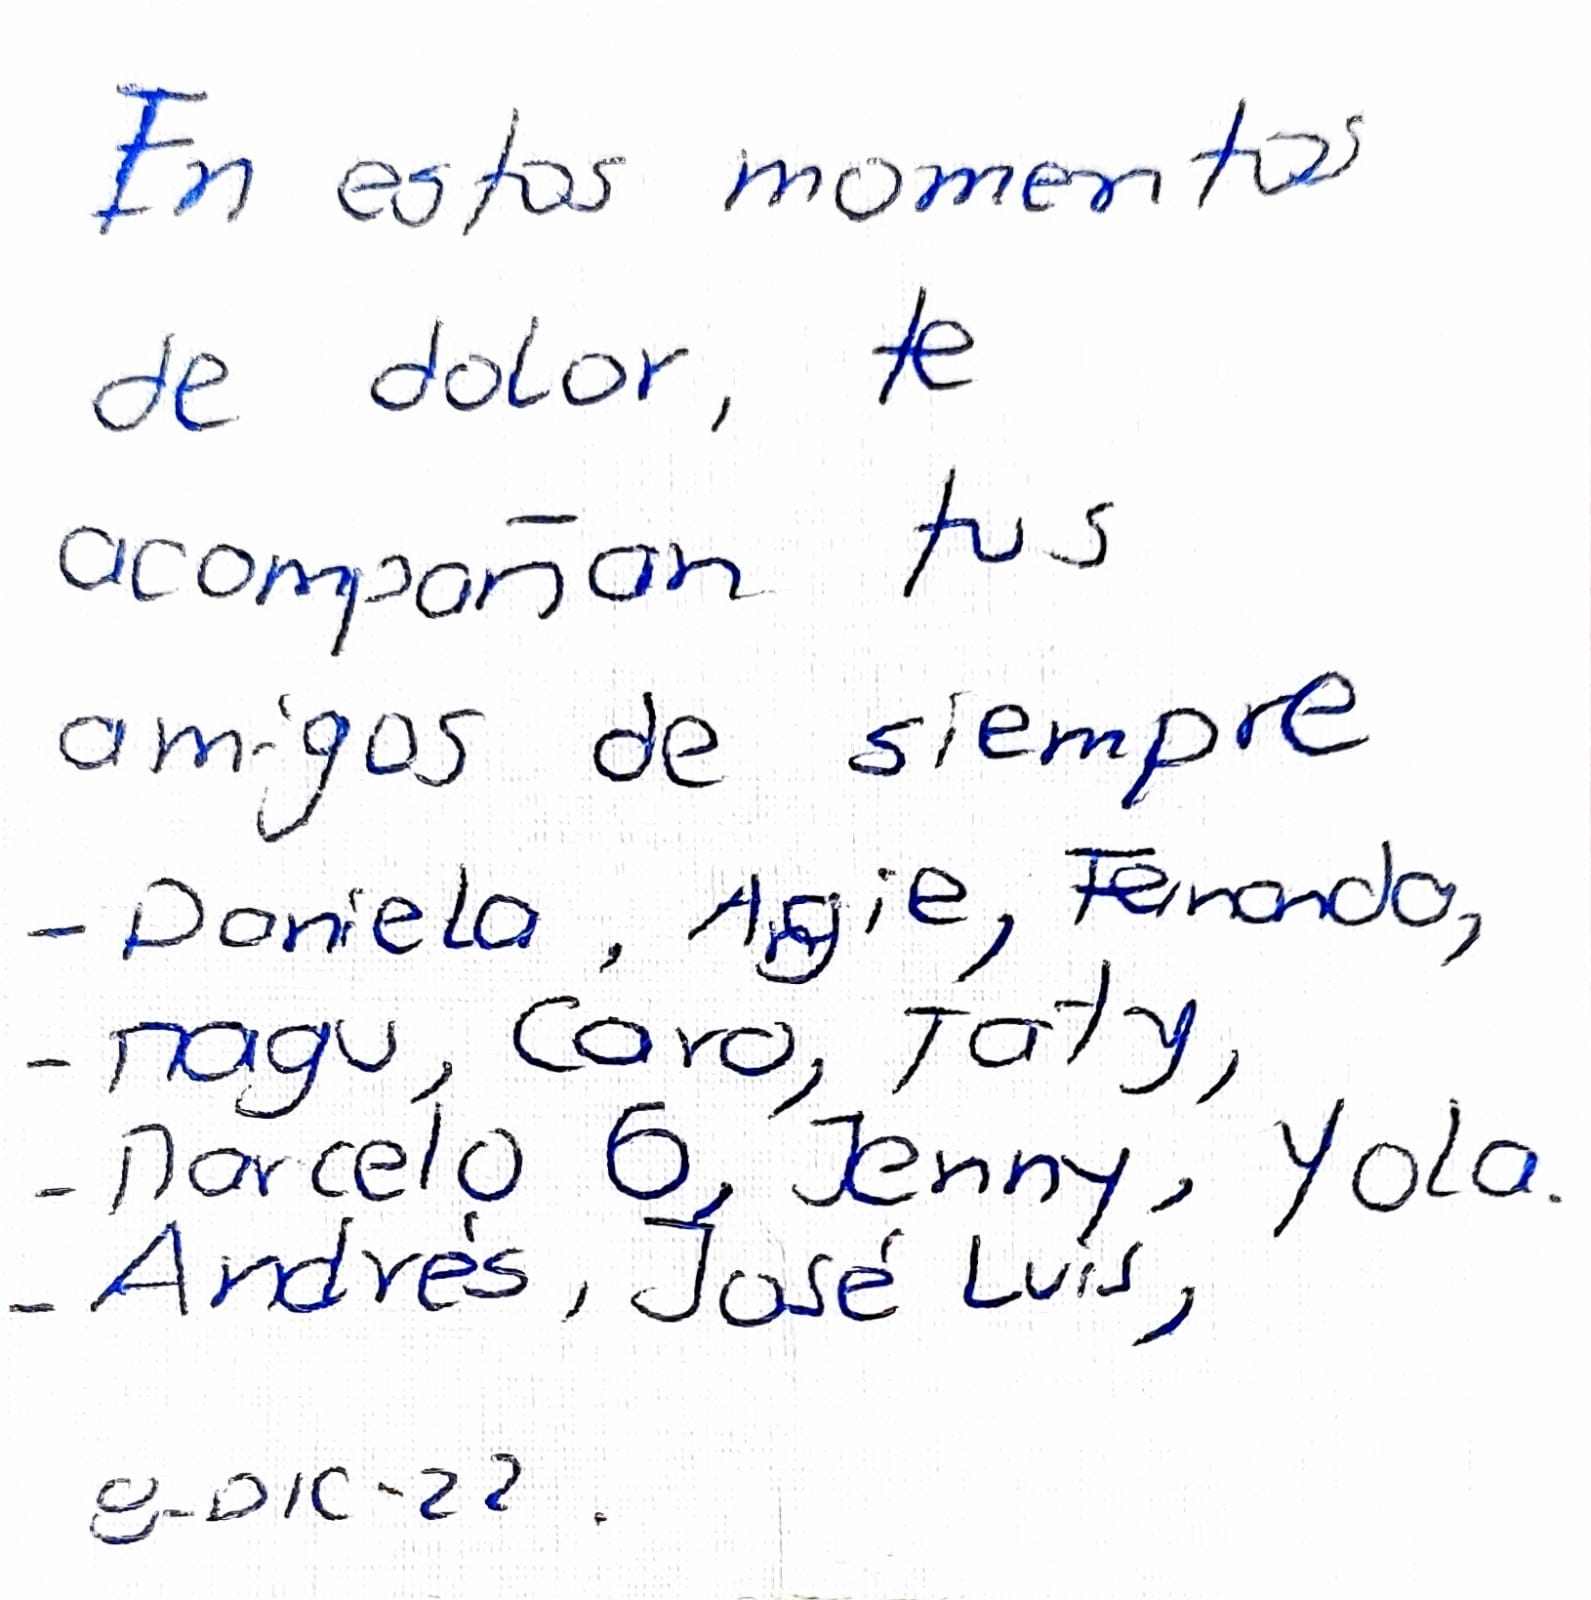 En estos momentos
de dolor, te
acompañan tus
amigos de siempre
- Daniela, Angie, Fernanda,
- Magu, Caro, Taty,
- Marcelo G, Jenny, Yola.
- Andrés, José Luis,
8-DIC-22.